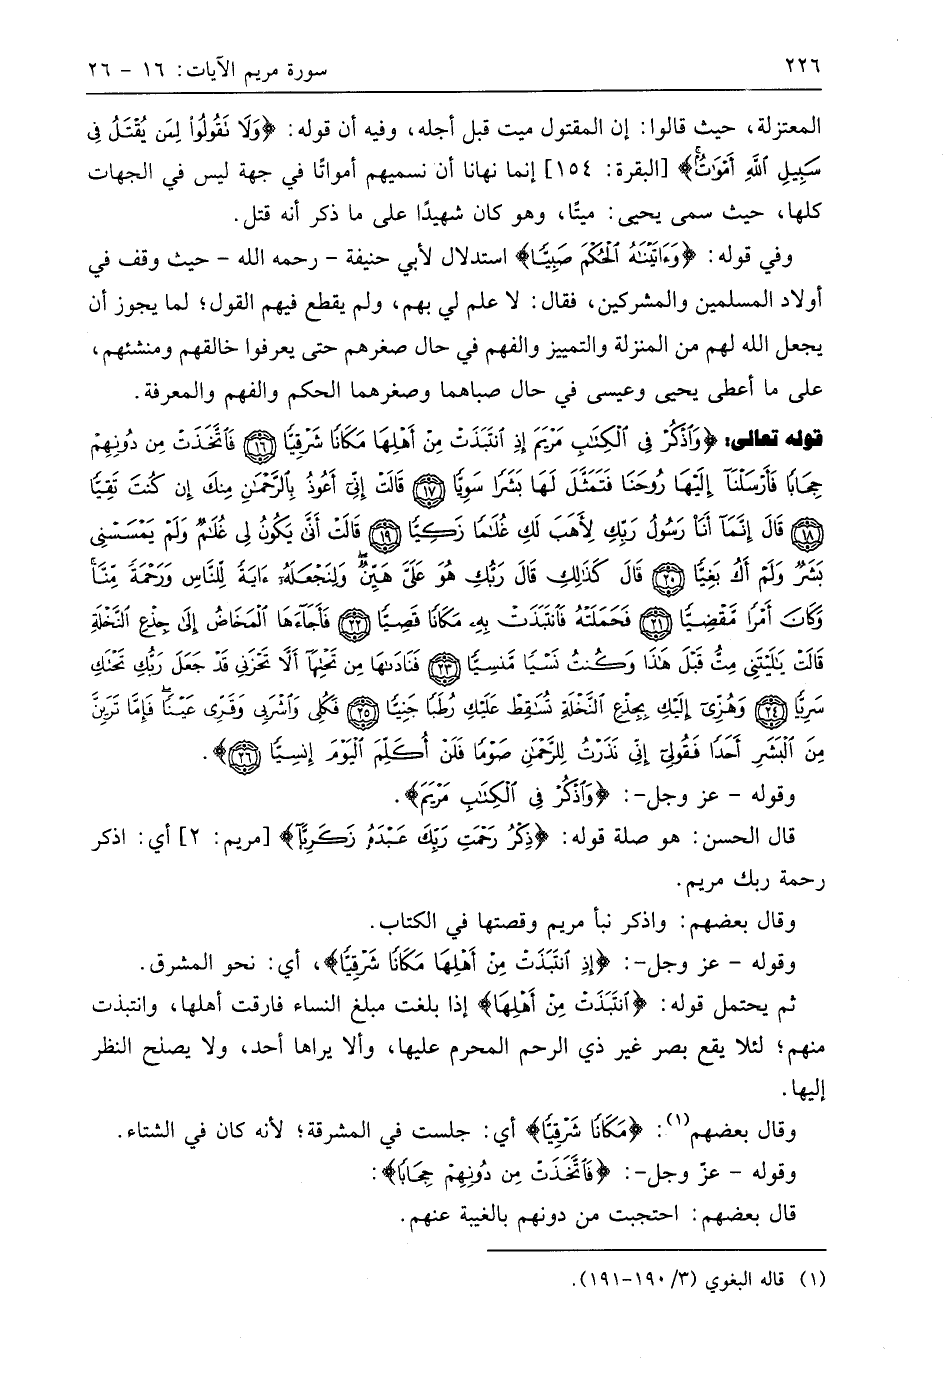 ٢٢٦
سورة مريم الآيات: ١٦ - ٢٦
المعتزلة، حيث قالوا: إن المقتول ميت قبل أجله، وفيه أن قوله: ﴿وَلَا تَقُولُوا۟ لِمَن يُقْتَلُ فِى
سَبِيلِ ٱللَّهِ أَمْوَٰتٌۢ﴾ [البقرة: ١٥٤] إنما نهانا أن نسميهم أمواتًا في جهة ليس في الجهات
كلها، حيث سمى يحيى: ميتًا، وهو كان شهيدًا على ما ذكر أنه قتل.
وفي قوله: ﴿وَءَاتَيْنَٰهُ ٱلْحُكْمَ صَبِيًّا﴾ استدلال لأبي حنيفة - رحمه الله - حيث وقف في
أولاد المسلمين والمشركين، فقال: لا علم لي بهم، ولم يقطع فيهم القول؛ لما يجوز أن
يجعل الله لهم من المنزلة والتمييز والفهم في حال صغرهم حتى يعرفوا خالقهم ومنشئهم،
على ما أعطى يحيى وعيسى في حال صباهما وصغرهما الحكم والفهم والمعرفة.
قوله تعالى: ﴿وَٱذْكُرْ فِى ٱلْكِتَٰبِ مَرْيَمَ إِذِ ٱنتَبَذَتْ مِنْ أَهْلِهَا مَكَانًا شَرْقِيًّا ١٦ فَٱتَّخَذَتْ مِن دُونِهِمْ
حِجَابًا فَأَرْسَلْنَآ إِلَيْهَا رُوحَنَا فَتَمَثَّلَ لَهَا بَشَرًا سَوِيًّا ١٧ قَالَتْ إِنِّىٓ أَعُوذُ بِٱلرَّحْمَٰنِ مِنكَ إِن كُنتَ تَقِيًّا
١٨ قَالَ إِنَّمَآ أَنَا۠ رَسُولُ رَبِّكِ لِأَهَبَ لَكِ غُلَٰمًا زَكِيًّا ١٩ قَالَتْ أَنَّىٰ يَكُونُ لِى غُلَٰمٌ وَلَمْ يَمْسَسْنِى
بَشَرٌ وَلَمْ أَكُ بَغِيًّا ٢٠ قَالَ كَذَٰلِكِ قَالَ رَبُّكِ هُوَ عَلَىَّ هَيِّنٌ ۖ وَلِنَجْعَلَهُۥٓ ءَايَةً لِّلنَّاسِ وَرَحْمَةً مِّنَّا ۚ
وَكَانَ أَمْرًا مَّقْضِيًّا ٢١ فَحَمَلَتْهُ فَٱنتَبَذَتْ بِهِۦ مَكَانًا قَصِيًّا ٢٢ فَأَجَآءَهَا ٱلْمَخَاضُ إِلَىٰ جِذْعِ ٱلنَّخْلَةِ
قَالَتْ يَٰلَيْتَنِى مِتُّ قَبْلَ هَٰذَا وَكُنتُ نَسْيًا مَّنسِيًّا ٢٣ فَنَادَىٰهَا مِن تَحْتِهَآ أَلَّا تَحْزَنِى قَدْ جَعَلَ رَبُّكِ تَحْتَكِ
سَرِيًّا ٢٤ وَهُزِّىٓ إِلَيْكِ بِجِذْعِ ٱلنَّخْلَةِ تُسَٰقِطْ عَلَيْكِ رُطَبًا جَنِيًّا ٢٥ فَكُلِى وَٱشْرَبِى وَقَرِّى عَيْنًا ۖ فَإِمَّا تَرَيِنَّ
مِنَ ٱلْبَشَرِ أَحَدًا فَقُولِىٓ إِنِّى نَذَرْتُ لِلرَّحْمَٰنِ صَوْمًا فَلَنْ أُكَلِّمَ ٱلْيَوْمَ إِنسِيًّا ٢٦﴾.
وقوله - عز وجل-: ﴿وَٱذْكُرْ فِى ٱلْكِتَٰبِ مَرْيَمَ﴾.
قال الحسن: هو صلة قوله: ﴿ذِكْرُ رَحْمَتِ رَبِّكَ عَبْدَهُۥ زَكَرِيَّآ﴾ [مريم: ٢] أي: اذكر
رحمة ربك مريم.
وقال بعضهم: واذكر نبأ مريم وقصتها في الكتاب.
وقوله - عز وجل-: ﴿إِذِ ٱنتَبَذَتْ مِنْ أَهْلِهَا مَكَانًا شَرْقِيًّا﴾، أي: نحو المشرق.
ثم يحتمل قوله: ﴿ٱنتَبَذَتْ مِنْ أَهْلِهَا﴾ إذا بلغت مبلغ النساء فارقت أهلها، وانتبذت
منهم؛ لئلا يقع بصر غير ذي الرحم المحرم عليها، وألا يراها أحد، ولا يصلح النظر
إليها.
وقال بعضهم(١): ﴿مَكَانًا شَرْقِيًّا﴾ أي: جلست في المشرقة؛ لأنه كان في الشتاء.
وقوله - عزّ وجل-: ﴿فَٱتَّخَذَتْ مِن دُونِهِمْ حِجَابًا﴾:
قال بعضهم: احتجبت من دونهم بالغيبة عنهم.
(١) قاله البغوي (٣/ ١٩٠-١٩١).